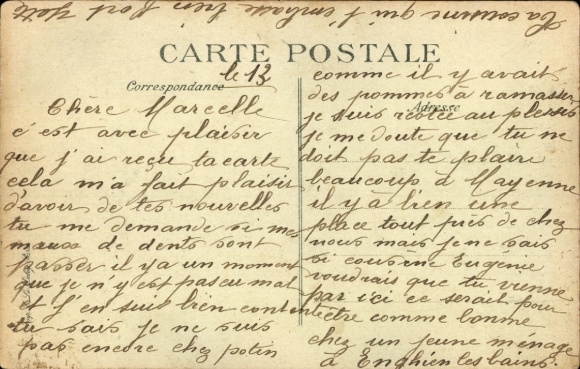 CARTE POSTALE
Correspondance
Adresse
le 13
Chère Marcelle
c'est avec plaisir
que j'ai reçu ta carte
cela m'a fait plaisir
d'avoir de tes nouvelles
tu me demande si mes
maux de dents sont
passer il y a un moment
que je n'y est pas eu mal
et j'en suis bien contente
tu sais je ne suis
pas encore chez potin
comme il y avait
des pommes à ramasser
je suis restée au plessis
je me doute que tu ne
doit pas te plaire
beaucoup à Mayenne
il y a bien une
place tout près de chez
nous mais je ne sais
si cousine Eugénie
voudrais que tu vienne
par ici ce serait pour
être comme bonne
chez un jeune ménage
à Enghien les bains.
Ta cousine qui t'embrasse bien fort